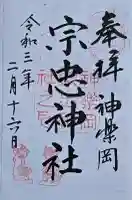 奉拝 神楽岡
宗忠神社
令和三年
二月十六日